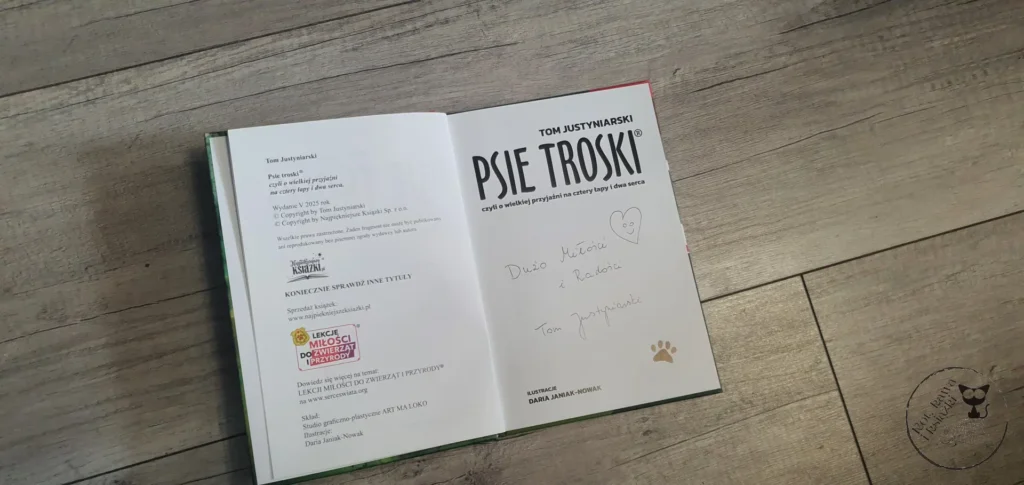 Tom Justyniarski
Psie troski®
czyli o wielkiej przyjaźni
na cztery łapy i dwa serca.
Wydanie V 2025 rok
© Copyright by Tom Justyniarski
© Copyright by Najpiękniejsze Książki Sp. z o.o.
Wszelkie prawa zastrzeżone. Żaden fragment nie może być publikowany
ani reprodukowany bez pisemnej zgody wydawcy lub autora.
Najpiękniejsze
KSIĄŻKI.pl
KONIECZNIE SPRAWDŹ INNE TYTUŁY
Sprzedaż książek:
www.najpiekniejszeksiazki.pl
LEKCJE
MIŁOŚCI
DO ZWIERZĄT
I PRZYRODY
Dowiedz się więcej na temat:
LEKCJI MIŁOŚCI DO ZWIERZĄT I PRZYRODY®
na www.serceswiata.org
Skład:
Studio graficzno-plastyczne ART MA LOKO
Ilustracje:
Daria Janiak Nowak
TOM JUSTYNIARSKI
PSIE TROSKI®
czyli o wielkiej przyjaźni na cztery łapy i dwa serca
Dużo Miłości
i Radości
Tom Justyniarski
ILUSTRACJE
DARIA JANIAK-NOWAK